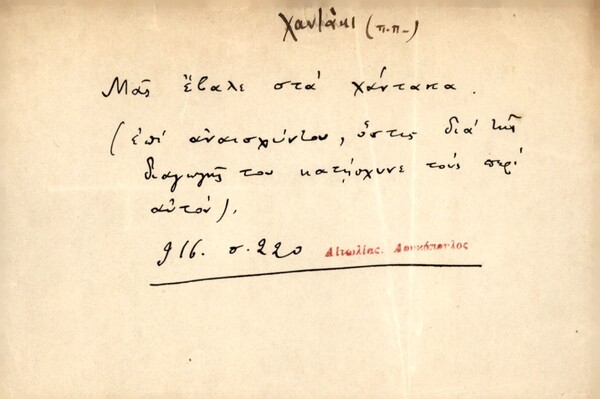 Χαντάκι (π.π-)
Μᾶς ἔβαλε στά χάντακα.
(ἐπί ἀναισχύντου, ὅστις διά τῆς
διαγωγῆς του κατῄσχυνε τούς περί
αὐτόν).
916. σ. 220 Αἰτωλίας. Λουκόπουλος